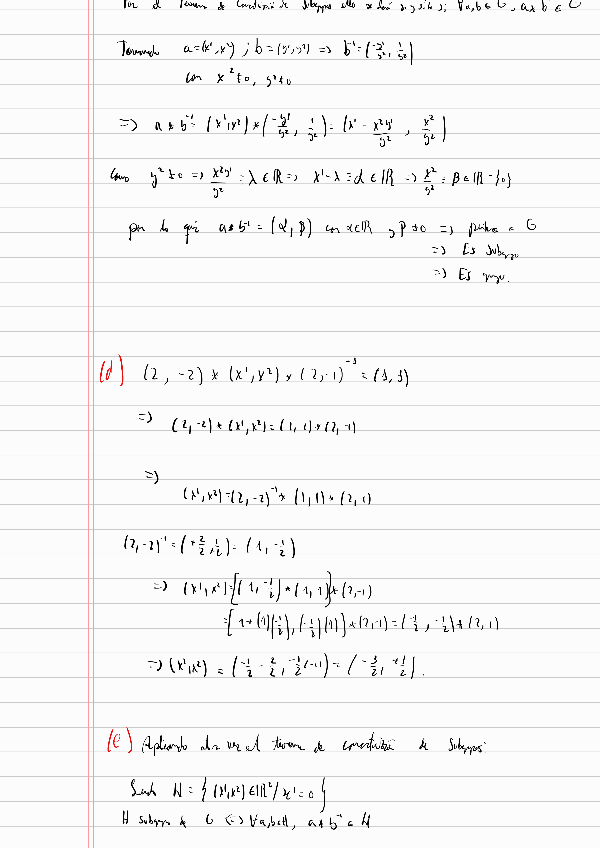 Por el Teorema de Caracterización de Subgrupos ello se dará si y sólo si ∀a,b ∈ G, a*b ∈ G
Tomando a=(x¹,x²) ; b=(y¹,y²) => b⁻¹=(-y¹/y², 1/y²)
con x²≠0, y²≠0
=> a*b⁻¹=(x¹,x²)*(-y¹/y², 1/y²)=(x¹ - x²y¹/y², x²/y²)
Como y²≠0 => x²y¹/y² = λ∈ℝ => x¹-λ = α∈ℝ => x²/y² = β∈ℝ-{0}
por lo que a*b⁻¹=(α,β) con α∈ℝ y β≠0 => pertenece a G
=> Es Subgrupo
=> Es grupo.
(d) (2,-2)*(x¹,x²)*(2,-1)⁻¹=(1,1)
=> (2,-2)*(x¹,x²)=(1,1)*(2,-1)
=>
(x¹,x²)=(2,-2)⁻¹*(1,1)*(2,1)
(2,-2)⁻¹=(+2/2, 1/2)=(1,-1/2)
=> (x¹,x²)=[(1,-1/2)*(1,1)]*(2,-1)
=[1+(1)(-1/2), (-1/2)(1)]*(2,-1)=(-1/2,-1/2)*(2,1)
=> (x¹,x²) = (-1/2 - 2/2, -1/2(-1))=(-3/2, +1/2).
(e) Aplicando otra vez el teorema de caracterización de Subgrupos
Siendo H={(x¹,x²)∈ℝ²/x¹=0}
H subgrupo de G <=> ∀a,b∈H, a*b⁻¹∈H